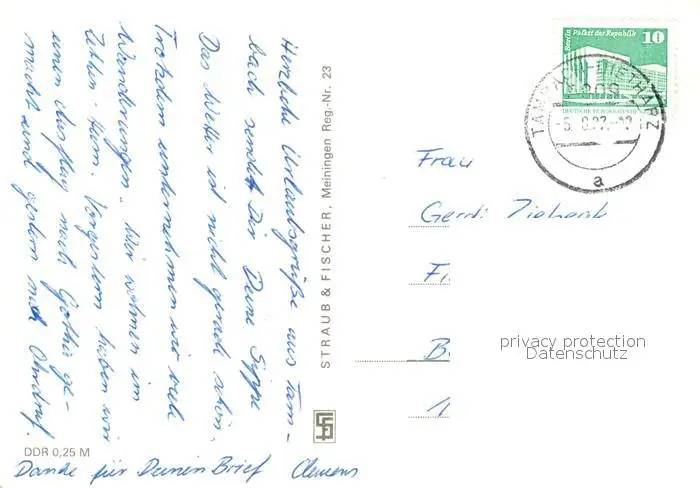 Herzliche Urlaubsgrüße aus Tam-
bach sendet Dir Deine Sippe
Das Wetter ist nicht gerade schön.
Trotzdem unternehmen wir viele
Wanderungen. Wir wohnen im
haben wir
einen Ausflug nach Gotha ge-
macht und gestern nach Ohrdruf.
Danke für Deinen Brief Clemens
DDR 0,25 M
STRAUB & FISCHER, Meiningen Reg.-Nr. 23
Berlin Palast der Republik 10
DEUTSCHE DEMOKRATISCHE
TAMBACH-DIETHARZ
5.
a
Frau
Gerdi
Fi
B
1
privacy protection
Datenschutz